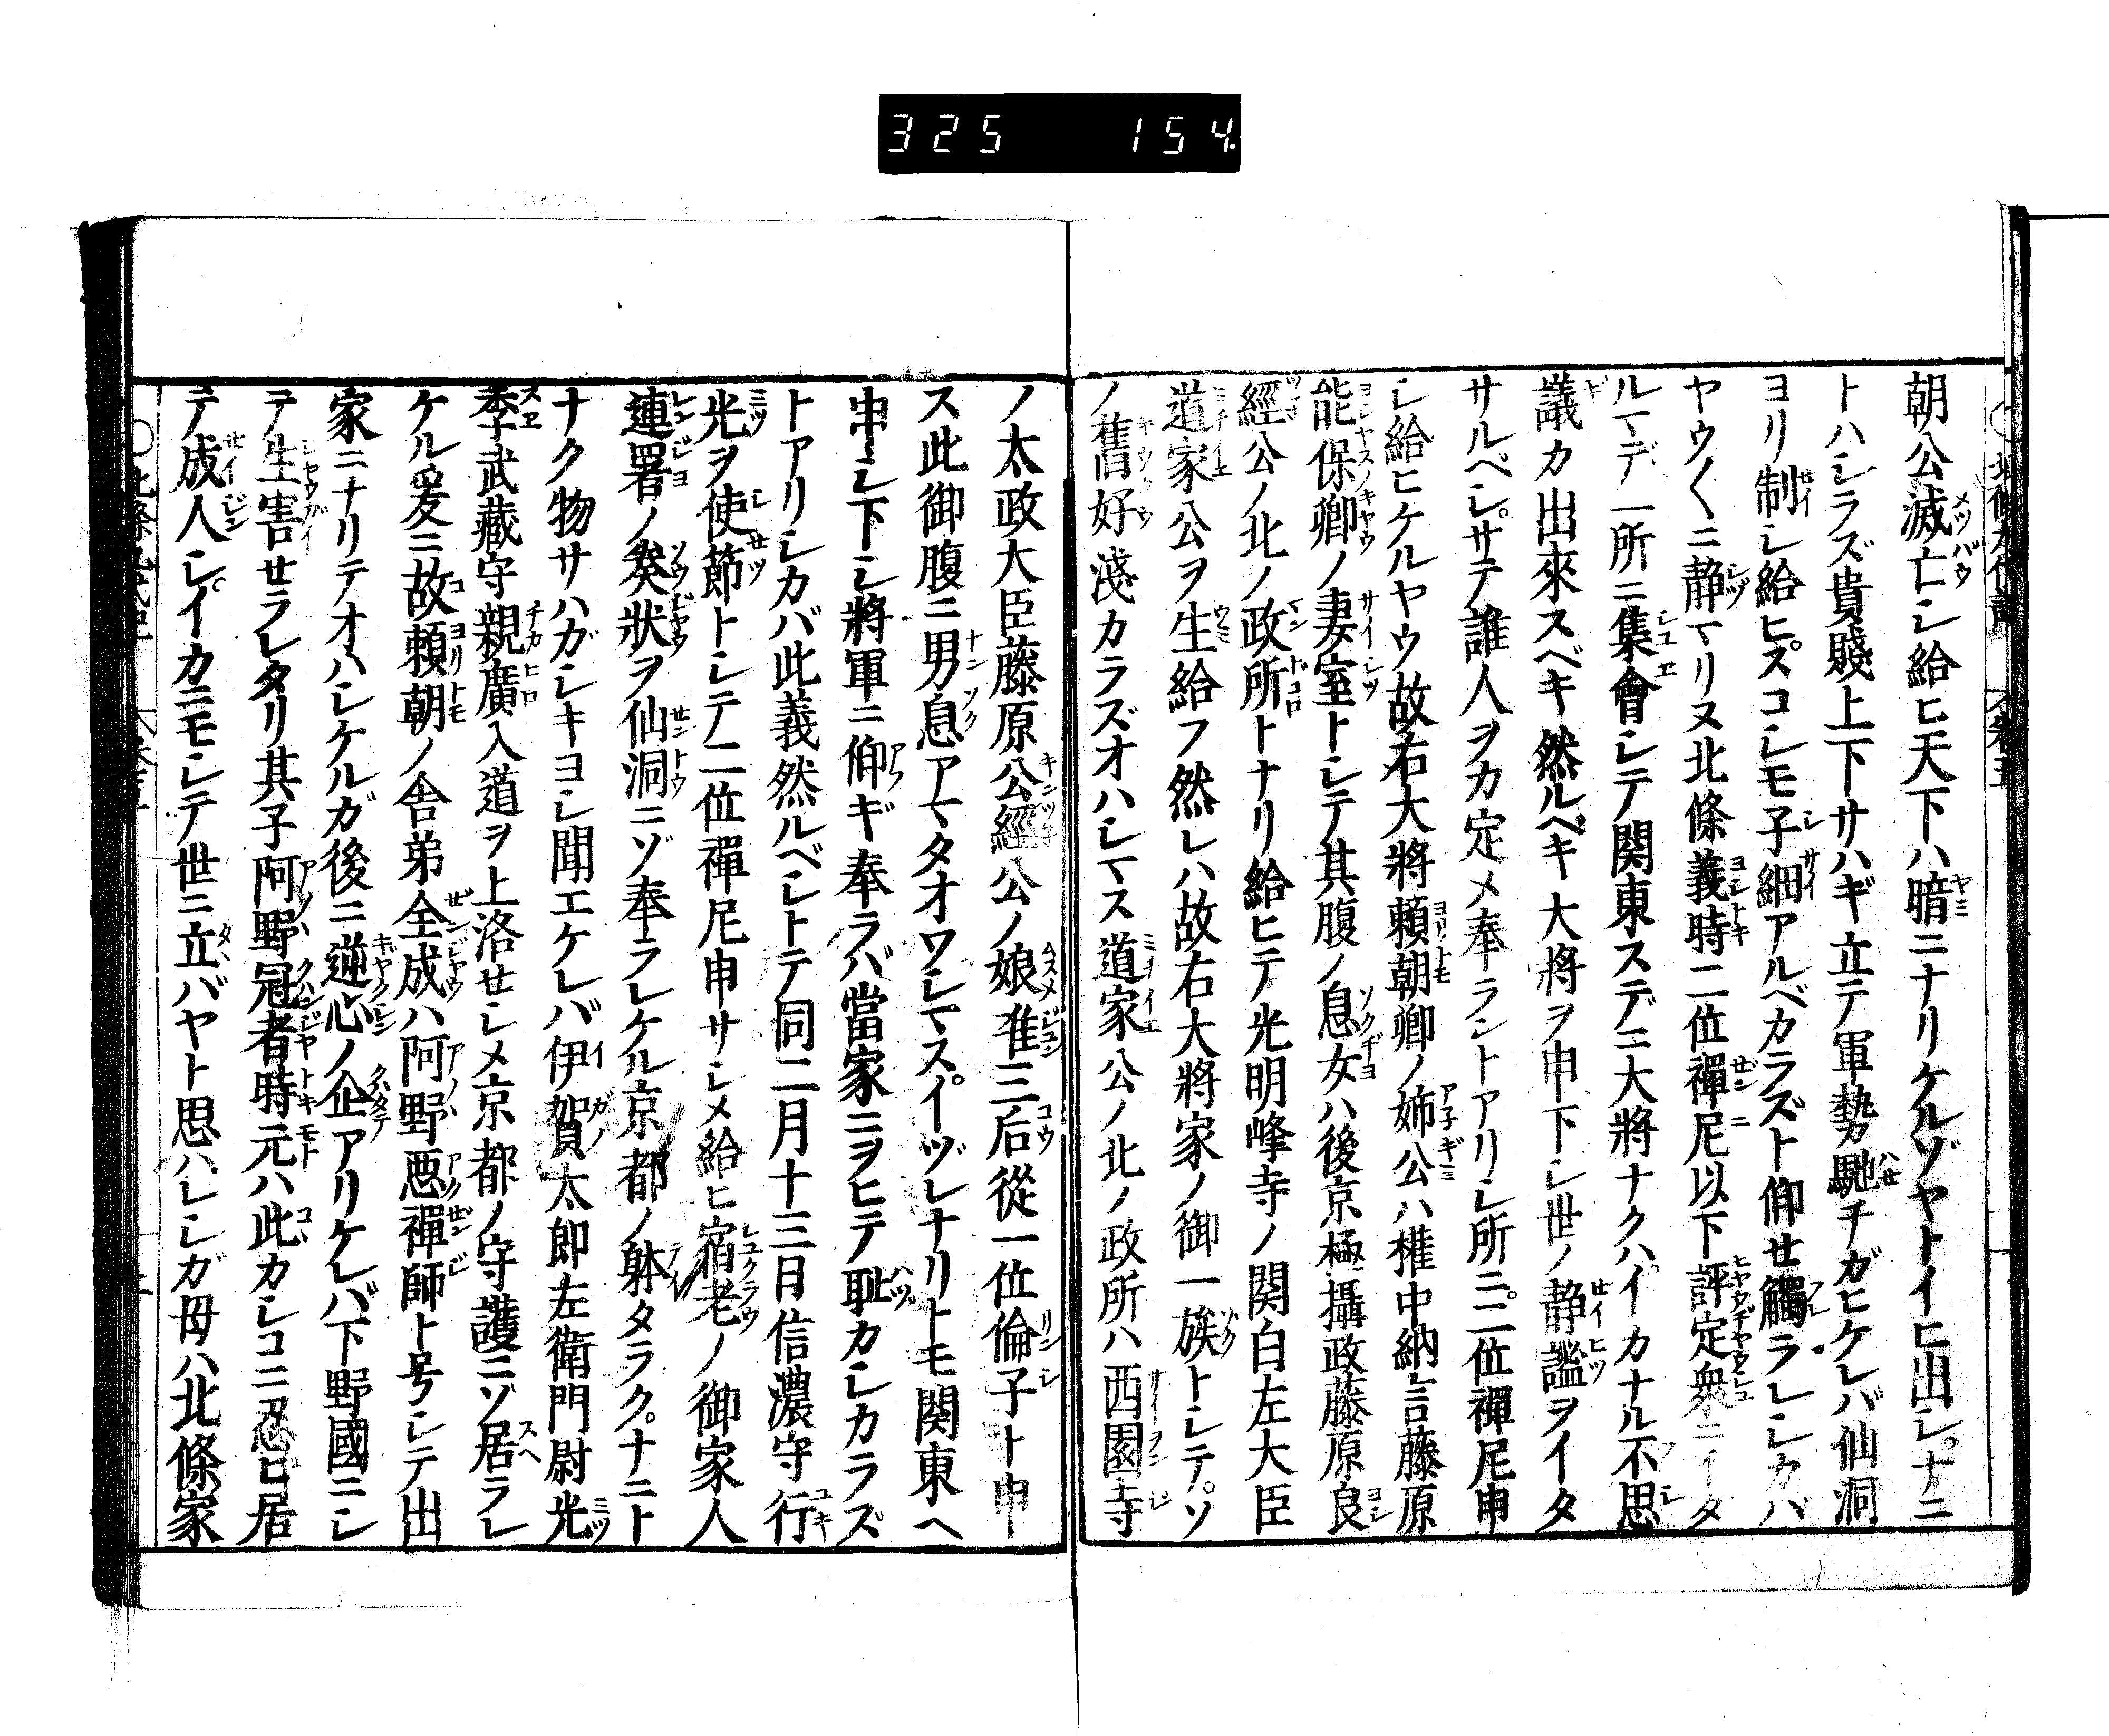 325 154.
朝公滅亡シ給ヒ天下ハ暗ニナリケルゾヤトイヒ出シ。ナニ
トハシラズ貴賤上下サハギ立テ軍勢馳チガヒケレバ仙洞
ヨリ制シ給ヒ。スコシモ子細アルベカラズト仰せ觸ラレシカバ
ヤウ〱ニ静マリヌ北條義時二位禪尼以下評定衆ニイタ
ルマデ一所ニ集會シテ関東スデニ大將ナクハ。イカナル不思
議カ出來スベキ然ルベキ大將ヲ申下シ世ノ静謐ヲイタ
サルベシ。サテ誰人ヲカ定メ奉ラントアリシ所ニ。二位禪尼申
シ給ヒケルヤウ故右大將頼朝卿ノ姉公ハ權中納言藤原
能保卿ノ妻室トシテ其腹ノ息女ハ後京極攝政藤原良
經公ノ北ノ政所トナリ給ヒテ光明峰寺ノ関白左大臣
道家公ヲ生給フ然レハ故右大將家ノ御一族トシテ。ソ
ノ舊好淺カラズオハシマス道家公ノ北ノ政所ハ西園寺
ノ太政大臣藤原公經公ノ娘准三后從一位倫子ト申
ス此御腹ニ男息アマタオワシマス。イヅレナリトモ関東ヘ
申シ下シ將軍ニ仰ギ奉ラバ當家ニヲヒテ耻カシカラズ
トアリシカバ此義然ルベシトテ同二月十三日信濃守行
光ヲ使節トシテ二位禪尼申サシメ給ヒ宿老ノ御家人
連署ノ奏狀ヲ仙洞ニゾ奉ラレケル京都ノ躰タラク。ナニト
ナク物サハガシキヨシ聞エケレバ伊賀太郎左衛門尉光
季武藏守親廣入道ヲ上洛せシメ京都ノ守護ニゾ居ラレ
ケル爰ニ故頼朝ノ舎弟全成ハ阿野惡禪師ト号シテ出
家ニナリテオハシケルガ後ニ逆心ノ企アリケレバ下野國ニシ
テ生害せラレタリ其子阿野冠者時元ハ此カシコニ忍ヒ居
テ成人シ。イカニモシテ世ニ立バヤト思ハレシガ母ハ北條家